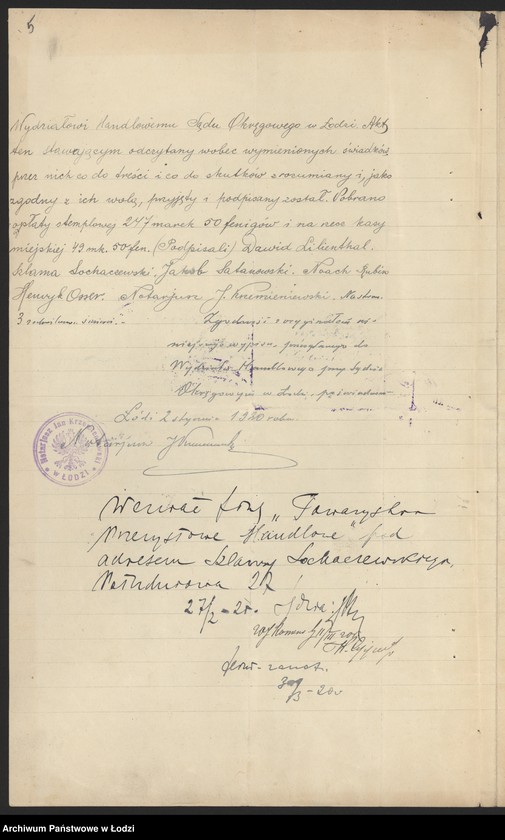 5
Wydziałowi Handlowemu Sądu Okręgowego w Łodzi. Akt
ten stawającym odczytany wobec wymienionych świadków,
przez nich co do treści i co do skutków zrozumiany i, jako
zgodny z ich wolą, przyjęty i podpisany został. Pobrano
opłaty stemplowej 247 marek 50 fenigów i na rzecz kasy
miejskiej 49 mk. 50 fen. (Podpisali) Dawid Lilienthal.
Szlama Sochaczewski. Jakób Satanowski. Noach Rubin
Henryk Osser. Notarjusz J. Krzemieniewski.
3
Zgodność z oryginałem
niniejszego wypisu
Wydziału Handlowego przy Sądzie
Okręgowym w Łodzi, poświadczam
Łódź 2 stycznia 1920 roku.
Notarjusz
Notarjusz Jan
w ŁODZI
Wezwać firmę „Towarzystwo
Przemysłowo Handlowe" pod
adresem Szlamy Sochaczewskiego,
27
27/2 - 20.
30/3 - 20
Archiwum Państwowe w Łodzi